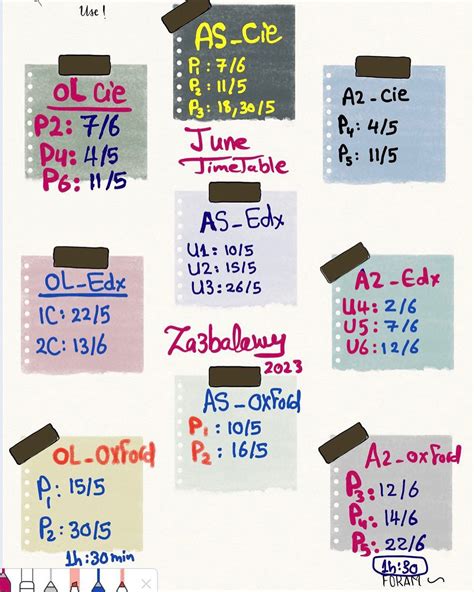 Use !
AS_Cie
P1 : 7/6
P2 : 11/5
P3 : 18,30/5
OL Cie
P2: 7/6
P4: 4/5
P6: 11/5
A2_Cie
P4: 4/5
P5: 11/5
June
TimeTable
AS_Edx
U1: 10/5
U2: 15/5
U3: 26/5
OL_Edx
1C: 22/5
2C: 13/6
A2_Edx
U4: 2/6
U5: 7/6
U6: 12/6
Za3balawy
2023
AS_Oxford
P1 : 10/5
P2 : 16/5
OL_Oxford
P1: 15/5
P2: 30/5
1h:30min
A2_Oxford
P3: 12/6
P4: 14/6
P5: 22/6
1h:30
FORAM